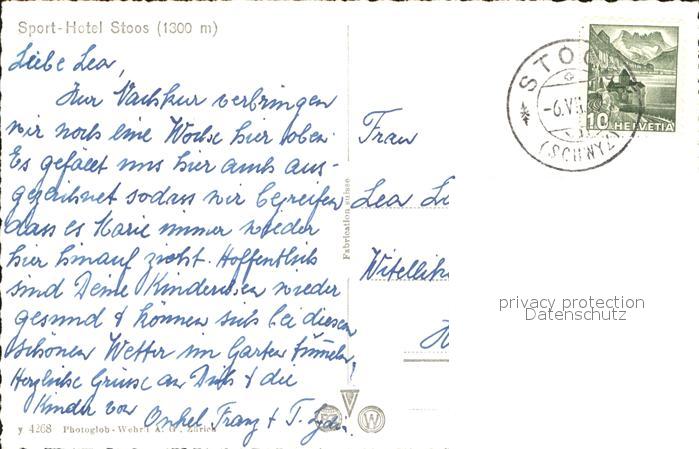 Sport-Hotel Stoos (1300 m)
Liebe Lea,
Zur Nachkur verbringen
wir noch eine Woche hier oben.
Es gefällt uns hier auch aus-
gezeichnet sodass wir begreifen
dass es Marie immer wieder
hier hinauf zieht. Hoffentlich
sind Deine Kinderchen wieder
gesund & können sich bei diesem
schönen Wetter im Garten tummeln.
Herzliche Grüsse an Dich & die
Kinder von Onkel Franz & T.
y 4268 Photoglob-Wehrli A. G., Zürich
Fabrication suisse
Frau
Lea
Witellik
STOOS
-6.VII.
(SCHWYZ)
10 HELVETIA
W
privacy protection
Datenschutz